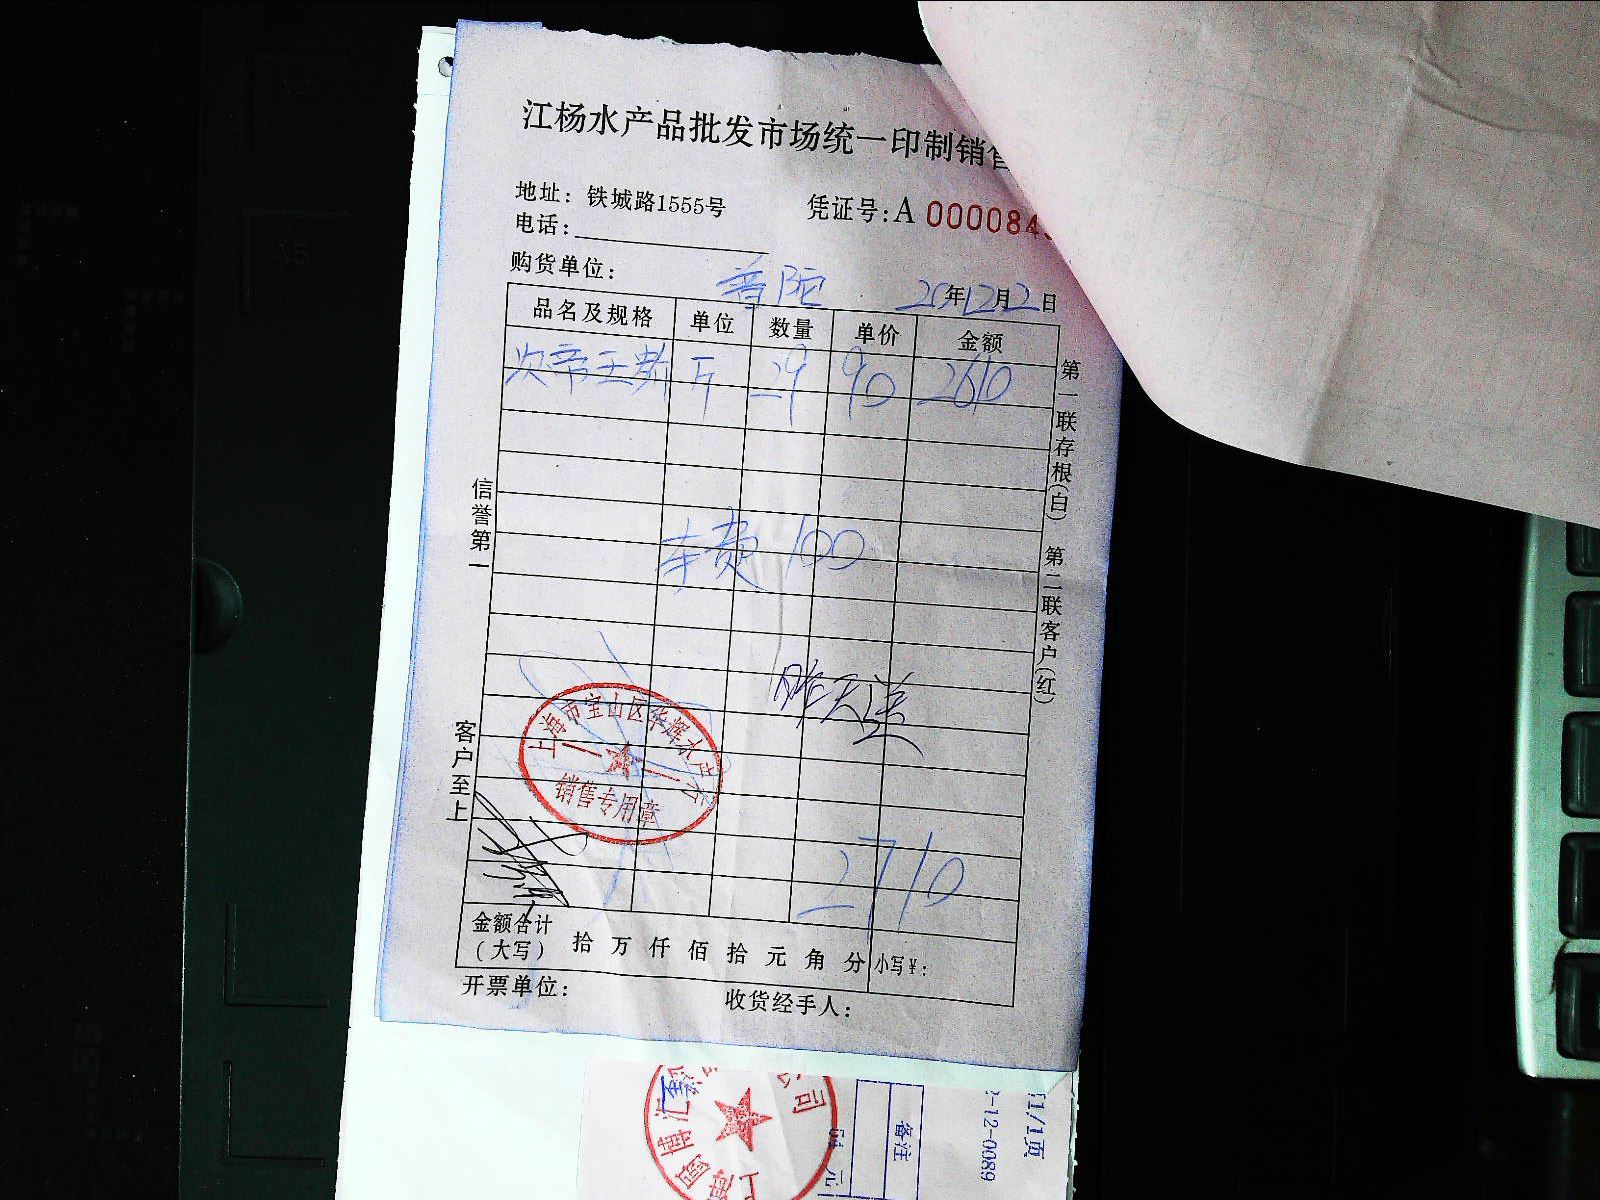 江杨水产品批发市场统一印制销售
地址：铁城路1555号
凭证号：A 000084
电话：
购货单位：普陀
20年12月2日
品名及规格 单位 数量 单价 金额
次帝王蟹 斤 29 90 2610
车费 100
昨天送
2710
金额合计（大写） 拾 万 仟 佰 拾 元 角 分 小写¥：
开票单位：
收货经手人：
信誉第一
客户至上
第一联存根（白） 第二联客户（红）
上海市宝山区华辉水产行
销售专用章
备注
元
1/1页
-12-0089